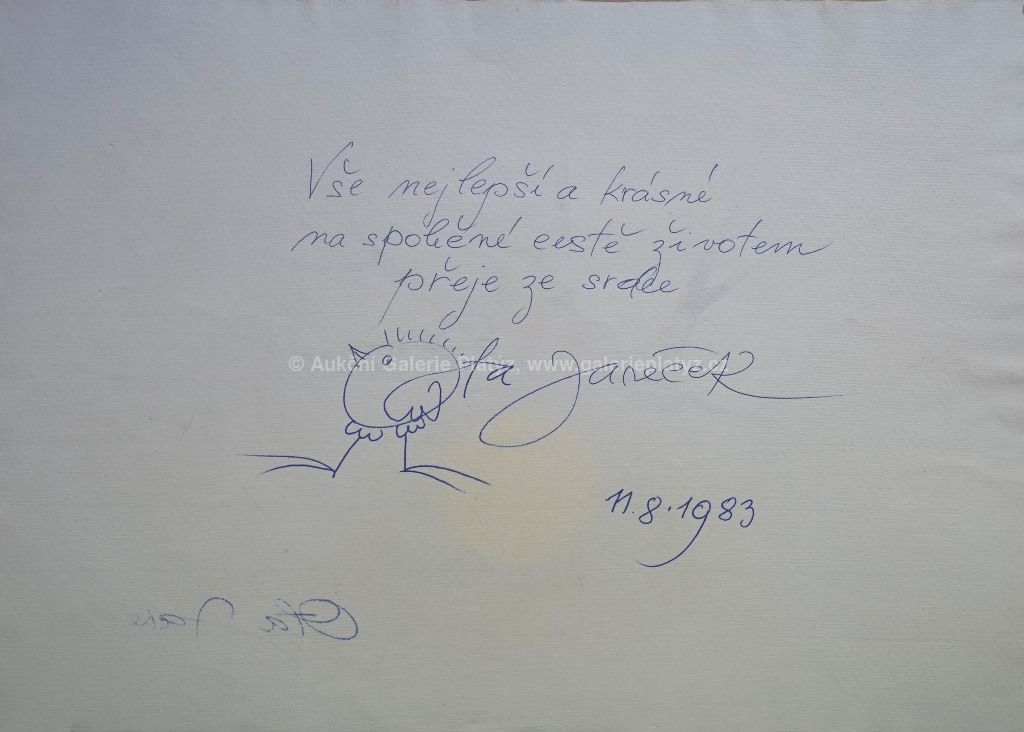 Vše nejlepší a krásné
na společné cestě životem
přeje ze srdce
© Aukční Galerie Platýz, www.galerieplatyz.cz
Ota Janeček
11.8.1983
Ota Janeč